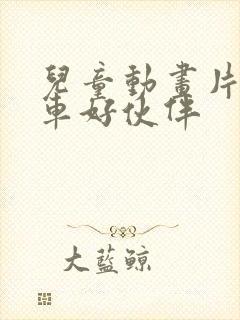 兒童動畫片
車好伙伴
大藍鯨